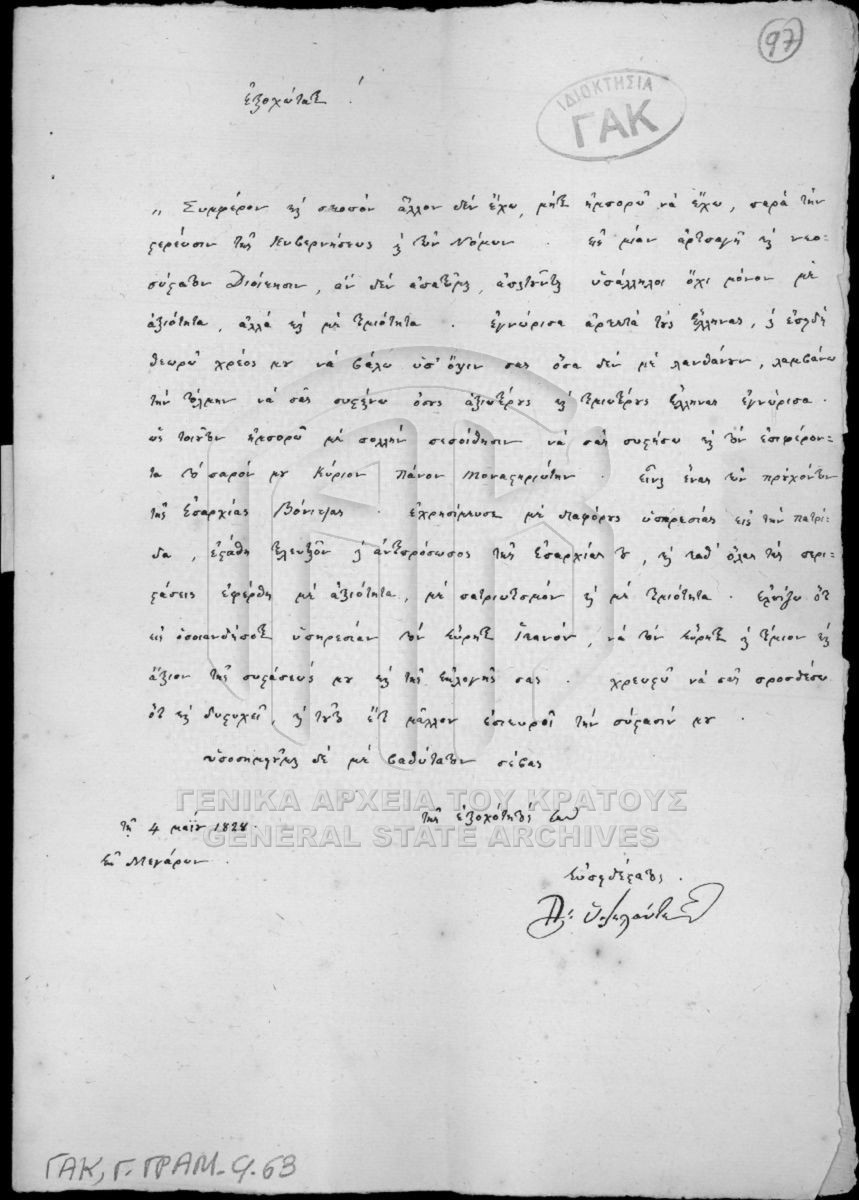 97
ἐξοχώτατε !
ΙΔΙΟΚΤΗΣΙΑ
ΓΑΚ
„ Συμφέρον καὶ σκοπὸν ἄλλον δὲν ἔχω, μήτε ἠμπορῶ νὰ ἔχω, παρὰ τὴν
στερέωσιν τῆς Κυβερνήσεως καὶ τῶν Νόμων. εἰς μίαν ἀρτιπαγῆ καὶ νεο-
σύστατον Διοίκησιν, ἂν δὲν ἀπατῶμαι, ἀπαιτοῦνται ὑπάλληλοι ὄχι μόνον μὲ
ἀξιότητα, ἀλλὰ καὶ μὲ τιμιότητα. ἐγνώρισα ἀρκετὰ τοὺς Ἕλληνας, καὶ ἐπειδὴ
θεωρῶ χρέος μου νὰ βάλω ὑπ' ὄψιν σας ὅσα δὲν μὲ λανθάνουν, λαμβάνω
τὴν τόλμην νὰ σᾶς συστένω ὅσους ἀξιωτέρους καὶ τιμιωτέρους Ἕλληνας ἐγνώρισα.
ὡς τοιοῦτον ἠμπορῶ μὲ πολλὴν πεποίθησιν νὰ σᾶς συστήσω καὶ τὸν ἐπιφέρον-
τα τὸ παρόν μου Κύριον Πάνον Μοναστηριώτην. εἶναι ἕνας τῶν προὐχόντων
τῆς ἐπαρχίας Βόνιτζας. ἐχρησίμευσε μὲ διαφόρους ὑπηρεσίας εἰς τὴν πατρί-
δα, ἐστάθη τελευταῖον καὶ ἀντιπρόσωπος τῆς ἐπαρχίας του, καὶ καθ' ὅλας τὰς περι-
στάσεις ἐφέρθη μὲ ἀξιότητα, μὲ πατριωτισμὸν καὶ μὲ τιμιότητα. ἐλπίζω ὅτι
εἰς ὁποιανδήποτε ὑπηρεσίαν τὸν εὕρητε ἱκανόν, νὰ τὸν εὕρητε καὶ τίμιον καὶ
ἄξιον τῆς συστάσεώς μου καὶ τῆς ἐκλογῆς σας. χρεωστῶ νὰ σᾶς προσθέσω
ὅτι καὶ δυστυχεῖ, καὶ τοῦτο ἔτι μᾶλλον ἐπισυρῶ τὴν σύστασίν μου.
ὑποσημειοῦμαι δὲ μὲ βαθύτατον σέβας
τῇ 4 μαΐου 1828.
τῆς ἐξοχότητός σας
ἐκ Μεγάρων.
εὐπειθέστατος.
Δ: Ὑψηλάντης
ΓΕΝΙΚΑ ΑΡΧΕΙΑ ΤΟΥ ΚΡΑΤΟΥΣ
GENERAL STATE ARCHIVES
ΓΑΚ, Γ. ΓΡΑΜ. Φ. 63